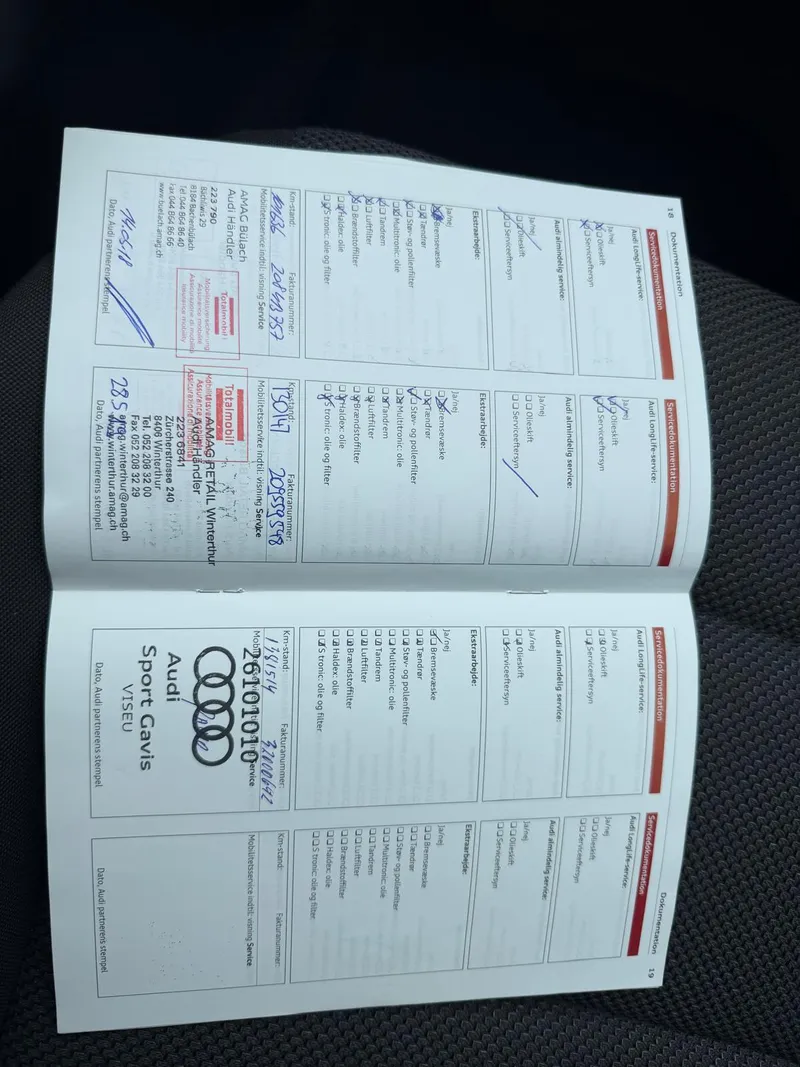 18 Dokumentation
Servicedokumentation
Audi LongLife-service:
Ja/nej
Olieskift
Serviceeftersyn
Audi almindelig service:
Ja/nej
Olieskift
Serviceeftersyn
Ekstraarbejde:
Ja/nej
Bremsevæske
Tændrør
Støv- og pollenfilter
Multitronic: olie
Tandrem
Luftfilter
Brændstoffilter
Haldex: olie
S tronic: olie og filter
Km-stand: Fakturanummer:
Mobilitetsservice indtil: visning Service
AMAG Bülach
Audi Händler
223 790
8184 Bachenbülach
Tel 044 864 86 40
Fax 044 864 86 66
www.buelach.amag.ch
Totalmobil!
Mobilitätsversicherung
Assurance mobilité
Assicurazione di mobilità
Insurance mobility
Dato, Audi partnerens stempel
Servicedokumentation
Audi LongLife-service:
Ja/nej
Olieskift
Serviceeftersyn
Audi almindelig service:
Ja/nej
Olieskift
Serviceeftersyn
Ekstraarbejde:
Ja/nej
Bremsevæske
Tændrør
Støv- og pollenfilter
Multitronic: olie
Tandrem
Luftfilter
Brændstoffilter
Haldex: olie
S tronic: olie og filter
Km-stand: Fakturanummer:
209559548
Mobilitetsservice indtil: visning Service
Totalmobil!
AMAG RETAIL Winterthur
Audi Händler
223 6841
Zürcherstrasse 240
8406 Winterthur
Tel. 052 208 32 00
Fax 052 208 32 29
www.winterthur.amag.ch
Dato, Audi partnerens stempel
Servicedokumentation
Audi LongLife-service:
Ja/nej
Olieskift
Serviceeftersyn
Audi almindelig service:
Ja/nej
Olieskift
Serviceeftersyn
Ekstraarbejde:
Ja/nej
Bremsevæske
Tændrør
Støv- og pollenfilter
Multitronic: olie
Tandrem
Luftfilter
Brændstoffilter
Haldex: olie
S tronic: olie og filter
Km-stand: Fakturanummer:
26101010
Audi
Sport Gavis
VISEU
Dato, Audi partnerens stempel
Dokumentation 19
Servicedokumentation
Audi LongLife-service:
Ja/nej
Olieskift
Serviceeftersyn
Audi almindelig service:
Ja/nej
Olieskift
Serviceeftersyn
Ekstraarbejde:
Ja/nej
Bremsevæske
Tændrør
Støv- og pollenfilter
Multitronic: olie
Tandrem
Luftfilter
Brændstoffilter
Haldex: olie
S tronic: olie og filter
Km-stand: Fakturanummer:
Mobilitetsservice indtil: visning Service
Dato, Audi partnerens stempel